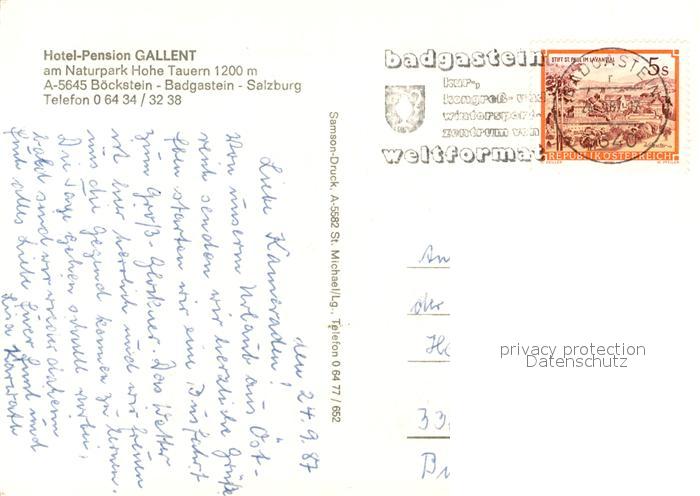 Hotel-Pension GALLENT
am Naturpark Hohe Tauern 1200 m
A-5645 Böckstein - Badgastein - Salzburg
Telefon 0 64 34 / 32 38
den 24.9.87
Liebe Kameraden!
Von unserm Urlaub aus Öst-
reich senden wir herzliche Grüße
starten wir eine Busfahrt
zum Groß-Glockner. Das Wetter
ist hier herrlich und wir freuen
uns die Gegend kennen zu lernen.
Die Tage gehen schnell vorbei,
bald sind wir wieder daheim
alles Liebe Euer und
Samson-Druck, A-5582 St. Michael/Lg., Telefon 0 64 77 / 652
badgastein
kur-,
kongreß- und
wintersport-
zentrum von
weltformat
STIFT ST. PAUL IM LAVANTTAL
5 S
REPUBLIK ÖSTERREICH
BADGASTEIN
5640
An
der
33
privacy protection
Datenschutz